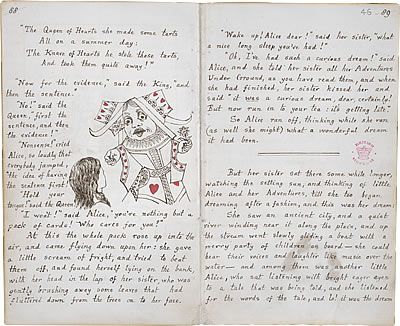 88
"The Queen of Hearts she made some tarts
All on a summer day:
The Knave of Hearts he stole those tarts,
And took them quite away!"
"Now for the evidence," said the King, "and
then the sentence."
"No!" said the
Queen, "first the
sentence, and then
the evidence!"
"Nonsense!" cried
Alice, so loudly that
everybody jumped,
"the idea of having
the sentence first!"
"Hold your
tongue!" said the Queen.
"I won't!" said Alice, "you're nothing but a
pack of cards! Who cares for you?"
At this the whole pack rose up into the
air, and came flying down upon her: she gave
a little scream of fright, and tried to beat
them off, and found herself lying on the bank,
with her head in the lap of her sister, who was
gently brushing away some leaves that had
fluttered down from the trees on to her face.
46. 89
"Wake up! Alice dear!" said her sister, "what
a nice long sleep you've had!"
"Oh, I've had such a curious dream!" said
Alice, and she told her sister all her Adventures
Under Ground, as you have read them, and when
she had finished, her sister kissed her and
said "it was a curious dream, dear, certainly!
But now run in to your tea: it's getting late."
So Alice ran off, thinking while she ran
(as well she might) what a wonderful dream
it had been.
But her sister sat there some while longer,
watching the setting sun, and thinking of little
Alice and her Adventures, till she too began
dreaming after a fashion, and this was her dream:
She saw an ancient city, and a quiet
river winding near it along the plain, and up
the stream went slowly gliding a boat with a
merry party of children on board — she could
hear their voices and laughter like music over the
water — and among them was another little
Alice, who sat listening with bright eager eyes
to a tale that was being told, and she listened
for the words of the tale, and lo! it was the dream